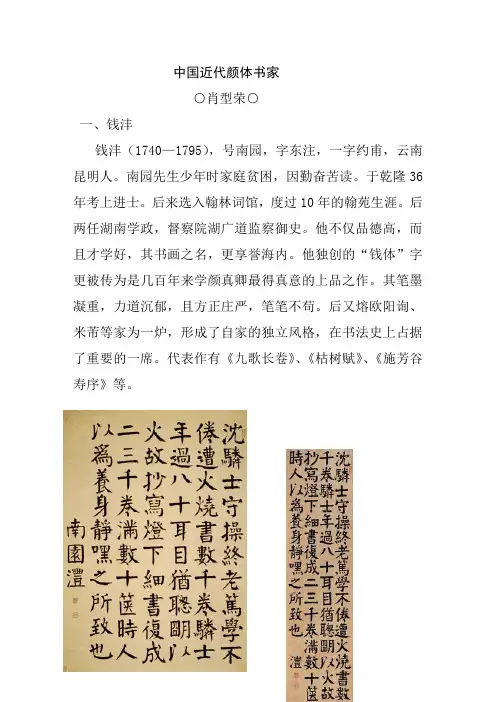 中国近代颜体书家
○肖型荣○
一、钱沣
钱沣(1740—1795),号南园,字东注,一字约甫,云南
昆明人。南园先生少年时家庭贫困,因勤奋苦读。于乾隆 36
年考上进士。后来选入翰林词馆,度过 10 年的翰苑生涯。后
两任湖南学政,督察院湖广道监察御史。他不仅品德高,而
且才学好,其书画之名,更享誉海内。他独创的“钱体”字
更被传为是几百年来学颜真卿最得真意的上品之作。其笔墨
凝重,力道沉郁,且方正庄严,笔笔不苟。后又熔欧阳询、
米芾等家为一炉,形成了自家的独立风格,在书法史上占据
了重要的一席。代表作有《九歌长卷》、《枯树赋》、《施芳谷
寿序》等。
沈驎士守操終老篤學不
倦遭火燒書數千卷驎士
年過八十耳目猶聰明以
火故抄寫燈下細書復成
二三千卷滿數十篋時人
以爲養身靜嘿之所致也
南園灃
沈驎士守操終老篤學不倦遭火燒書數
千卷驎士年過八十耳目猶聰明以火故
抄寫燈下細書復成二三千卷滿數十篋
時人以爲養身靜嘿之所致也 灃